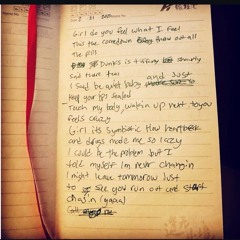 Girl do you feel what I feel
the comedown throw out all
the pills
Dunks is
and tears
and Just
I said be quiet baby
keep your lips sealed
Touch my body, wakin up next to you
feels crazy
Girl its symbiotic How heartbreak
and drugs made me so lazy
I could be the problem but I
told myself Im never changin
I might leave tommorow Just
to see you run out and start
chasin